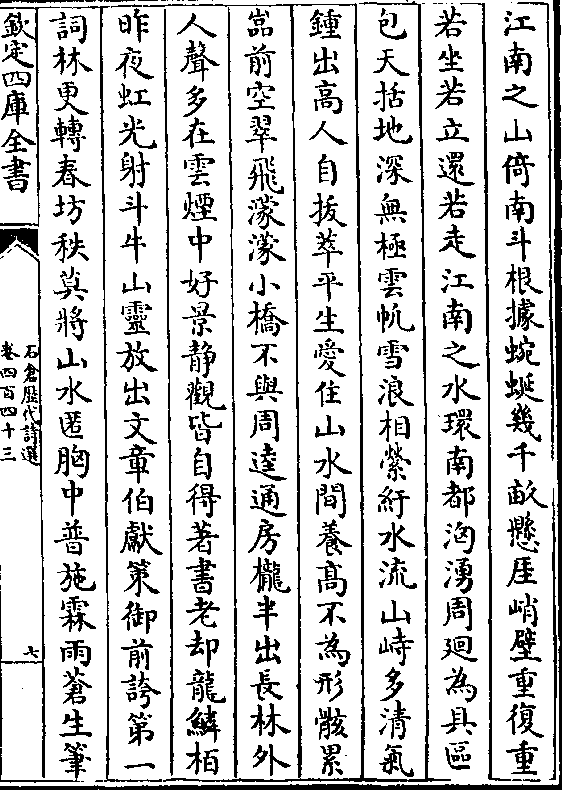 江南之山倚南斗根據蜿蜒幾千畝懸厓峭壁重復重
若坐若立還若走江南之水環南都洶湧周廻為具區
包天括地深無極雲帆雪浪相縈紆水流山峙多清氣
鍾出高人自拔萃平生愛住山水間養高不為形骸累
嵓前空翠飛濛濛小橋不與周逵通房櫳半出長林外
人聲多在雲煙中好景静觀皆自得著書老却龍鱗栢
昨夜虹光射斗牛山靈放出文章伯獻策御前誇第一
詞林更轉春坊秩莫將山水匿胸中普施霖雨蒼生筆
欽定四庫全書
石倉歴代詩選
卷四百四十三
七